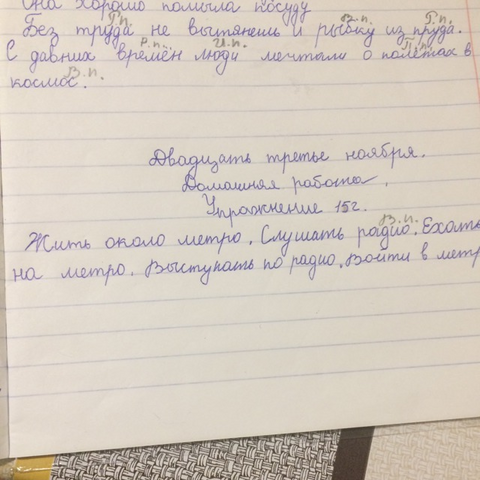 Она хорошо помыла посуду
Г.п. В.п. Г.п.
Без труда не вытянешь и рыбку из пруда.
Р.п. И.п. П.п.
С давних времён люди мечтали о полётах в
В.п.
космос.
Двадцать третье ноября.
Домашняя работа.
Упражнение 152.
В.п.
Жить около метро. Слушать радио. Ехать
на метро. Выступать по радио. Войти в метр